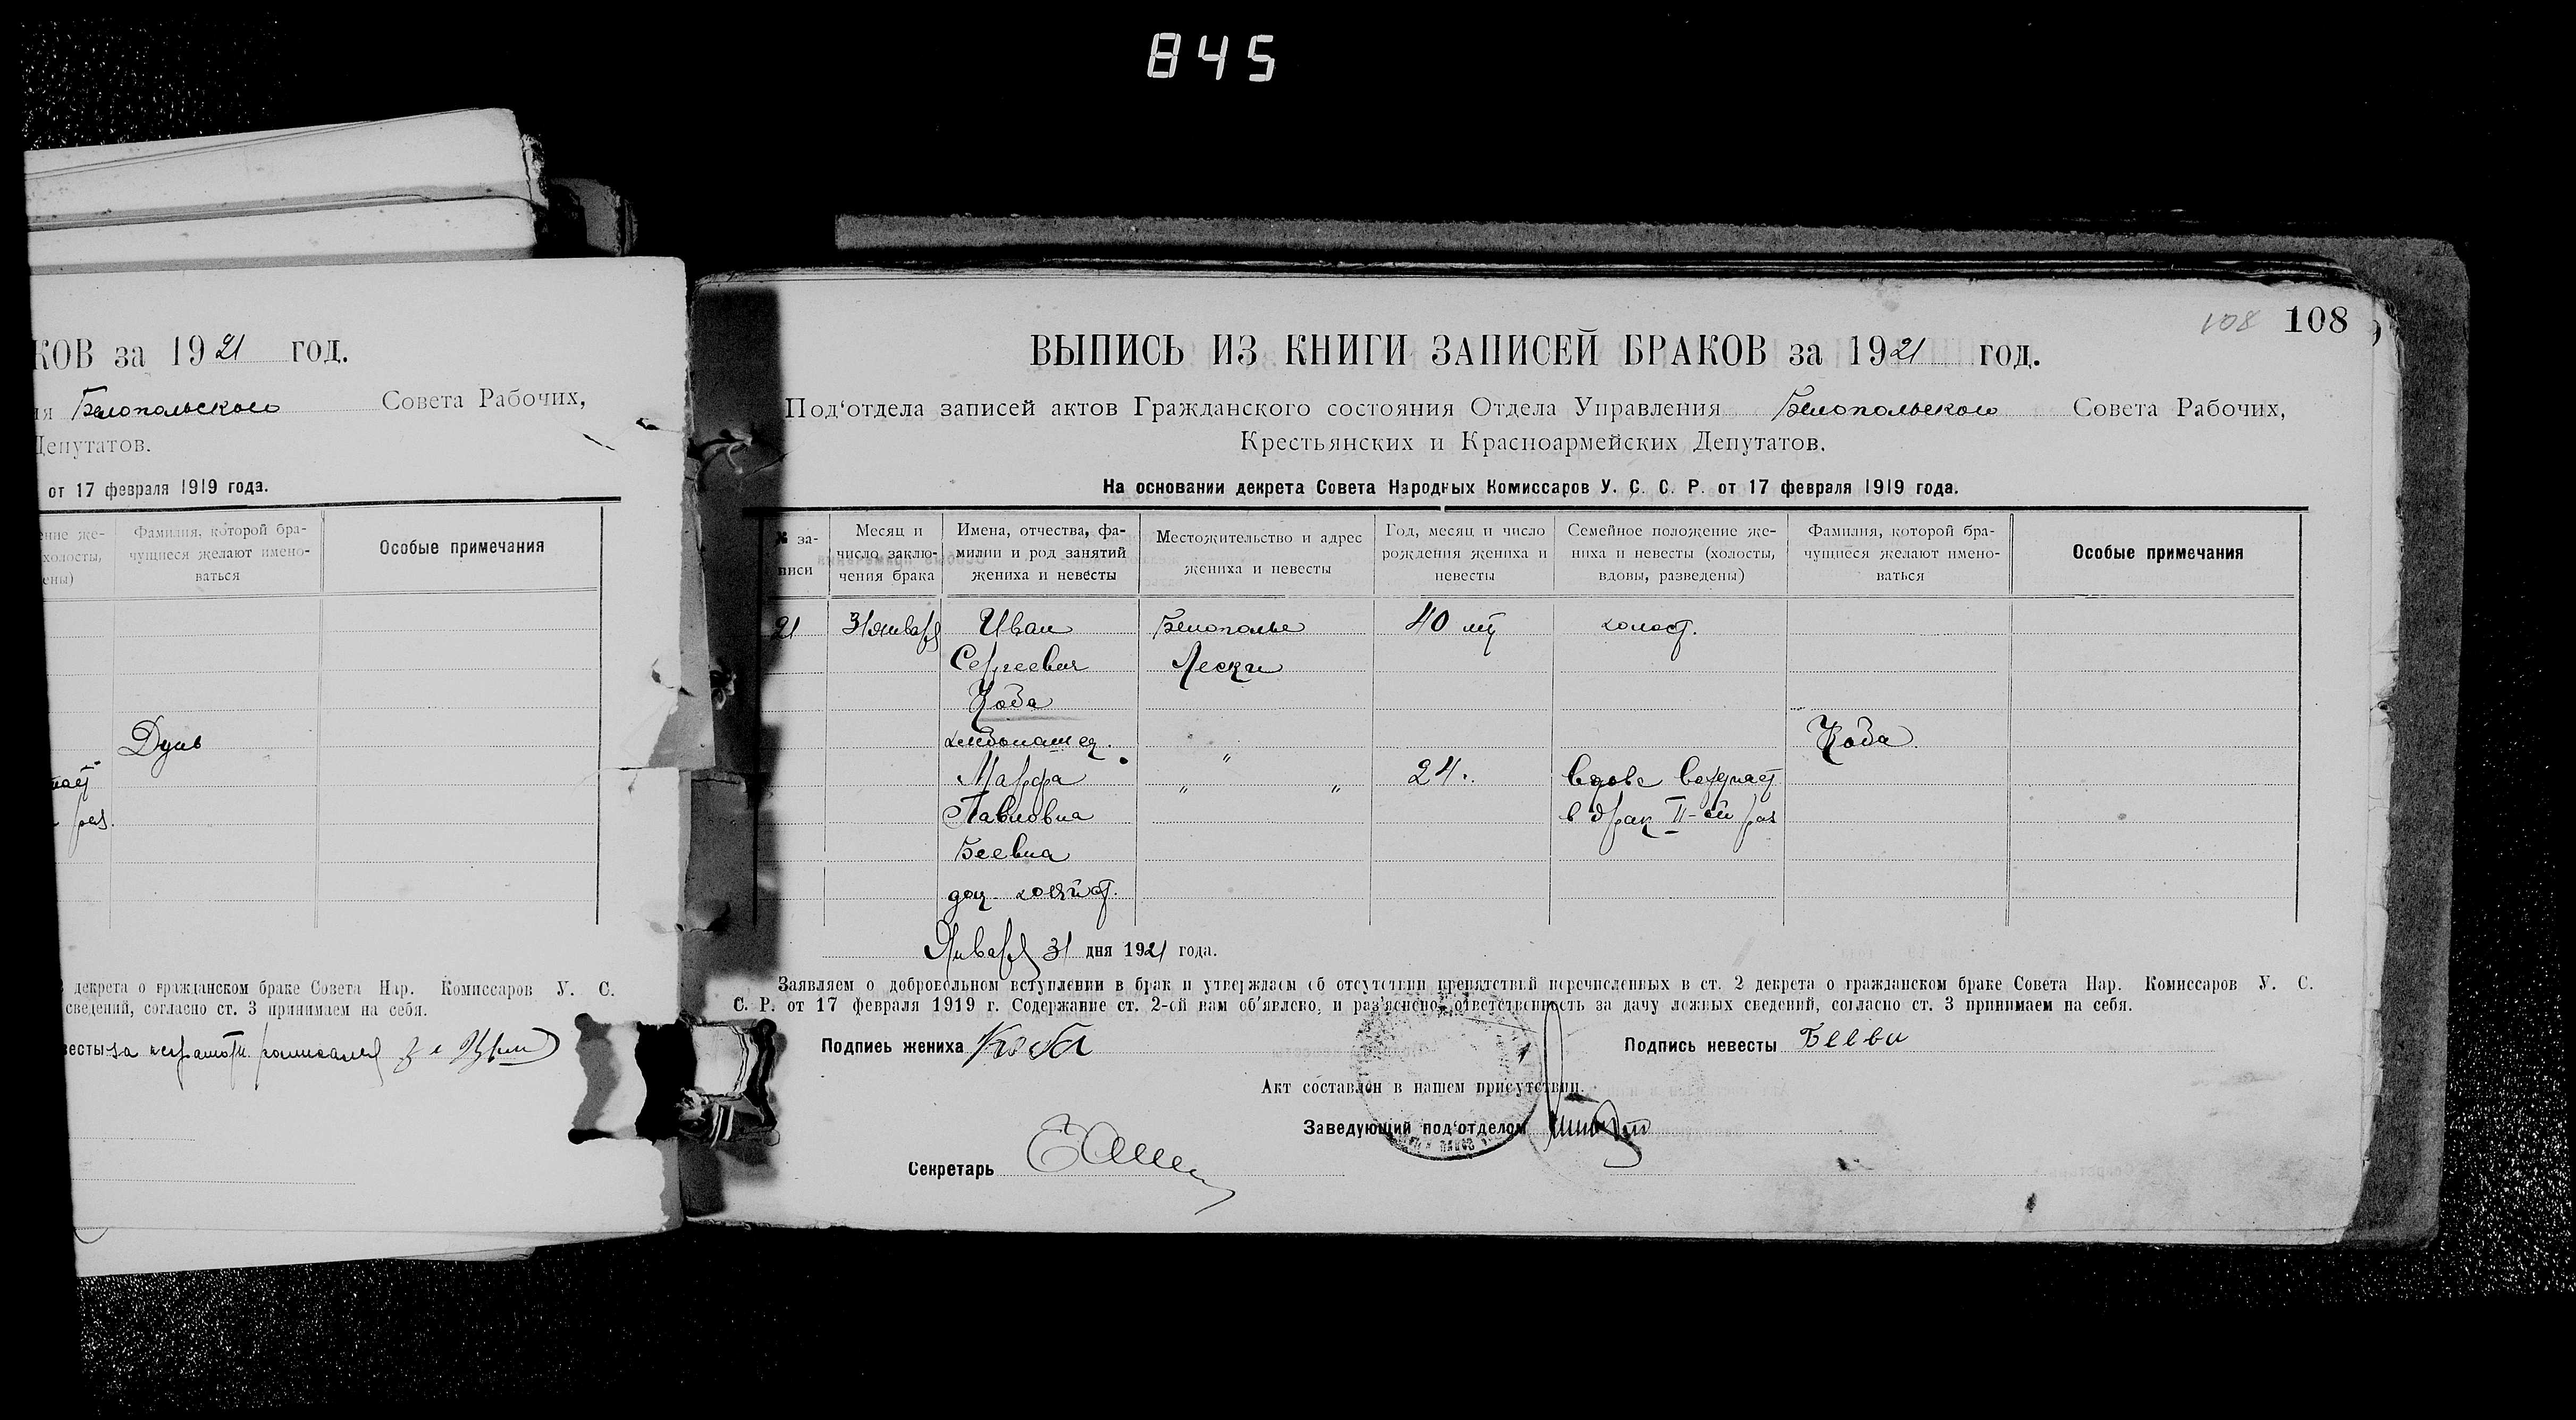 845
КОВ за 1921 год.
ия Белопольского Совета Рабочих,
Депутатов.
от 17 февраля 1919 года.
ение же-
холосты,
ены)
Фамилия, которой бра-
чущиеся желают имено-
ваться
Особые примечания
Дунь
раз.
декрета о гражданском браке Совета Нар. Комиссаров У. С.
сведений, согласно ст. 3 принимаем на себя.
весты за
108 108
ВЫПИСЬ ИЗ КНИГИ ЗАПИСЕЙ БРАКОВ за 1921 год.
Под‘отдела записей актов Гражданского состояния Отдела Управления Белопольского Совета Рабочих,
Крестьянских и Красноармейских Депутатов.
На основании декрета Совета Народных Комиссаров У. С. С. Р. от 17 февраля 1919 года.
№ за-
писи
Месяц и
число заклю-
чения брака
Имена, отчества, фа-
милии и род занятий
жениха и невесты
Местожительство и адрес
жениха и невесты
Год, месяц и число
рождения жениха и
невесты
Семейное положение же-
ниха и невесты (холосты,
вдовы, разведены)
Фамилия, которой бра-
чущиеся желают имено-
ваться
Особые примечания
21 31 января Иван Белополье 40 лет холост.
Сергеевич Лески
Коба
хлебопашец. Коба
Марфа " " 24. вдова вступает
Павловна в брак II-ой раз
Беевна
дом. хозяйст.
Января 31 дня 1921 года.
Заявляем о добровольном вступлении в брак и утверждаем об отсутствии препятствий перечисленных в ст. 2 декрета о гражданском браке Совета Нар. Комиссаров У. С.
С. Р. от 17 февраля 1919 г. Содержание ст. 2-ой нам об'явлено, и раз'яснено ответственность за дачу ложных сведений, согласно ст. 3 принимаем на себя.
Подпись жениха Коба Подпись невесты Беевн
Акт составлен в нашем присутствии.
Заведующий под‘отделом
Секретарь